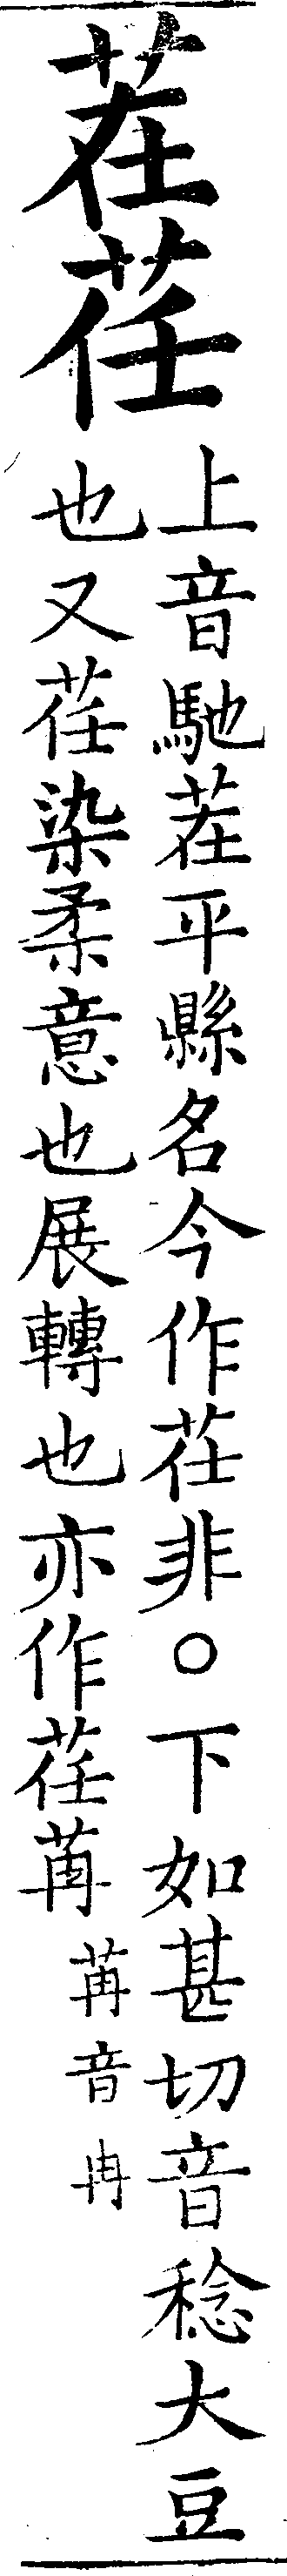 茬荏
上音馳茬平縣名今作茌非○下如甚切音稔大豆
也又荏染柔意也展轉也亦作荏苒
苒音冉